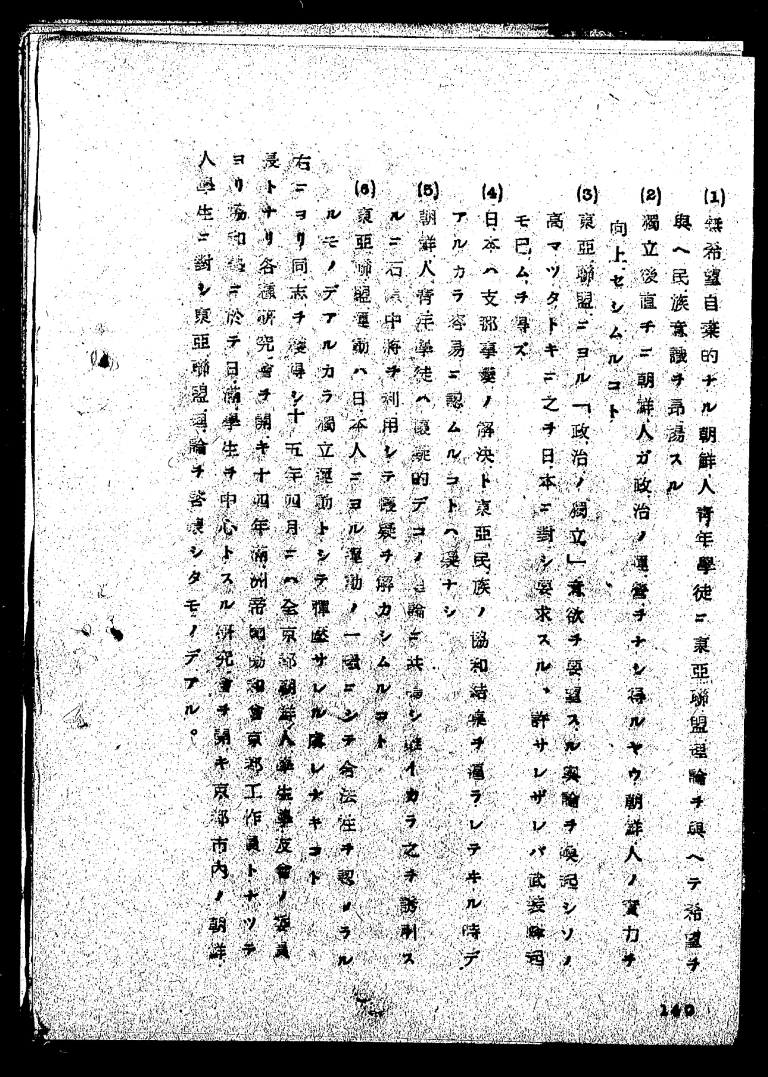 (1) 無希望自棄的ナル朝鮮人青年學徒ニ東亞聯盟理論ヲ與ヘテ希望ヲ
與ヘ民族意識ヲ昂揚スル
(2) 獨立後直チニ朝鮮人ガ政治ノ運營ヲナシ得ルヤウ朝鮮人ノ實力ヲ
向上セシムルコト
(3) 東亞聯盟ニヨル「政治ノ獨立」意欲ヲ要望スル輿論ヲ喚起シソノ
高マツタトキニ之ヲ日本ニ對シ要求スル、許サレザレバ武裝蜂起
モ已ムヲ得ズ
(4) 日本ハ支那事變ノ解決ト東亞民族ノ協和結束ヲ逼ラレテヰル時デ
アルカラ容易ニ認ムルコトハ疑ナシ
(5) 朝鮮人青年學徒ハ デコノ 論ニ共鳴シ カラ之ヲ誘引ス
ルニ石原中將ヲ利用シテ 疑ヲ解カシムルコト
(6) 東亞聯盟運動ハ日本人ニヨル運動ノ一環ニシテ合法性ヲ認メラル
ルモノデアルカラ獨立運動トシテ彈壓サレル虞レナキコト
右ニヨリ同志ヲ獲得シ十五年四月ニハ全京都朝鮮人學生學友會ノ委員
長トナリ各種研究會ヲ開キ十四年滿洲帝國協和會京都工作員トナツテ
ヨリ協和 ニ於テ日滿學生ヲ中心トスル研究會ヲ開キ京都市内ノ朝鮮
人學生ニ對シ東亞聯盟理論ヲ シタモノデアル。
140